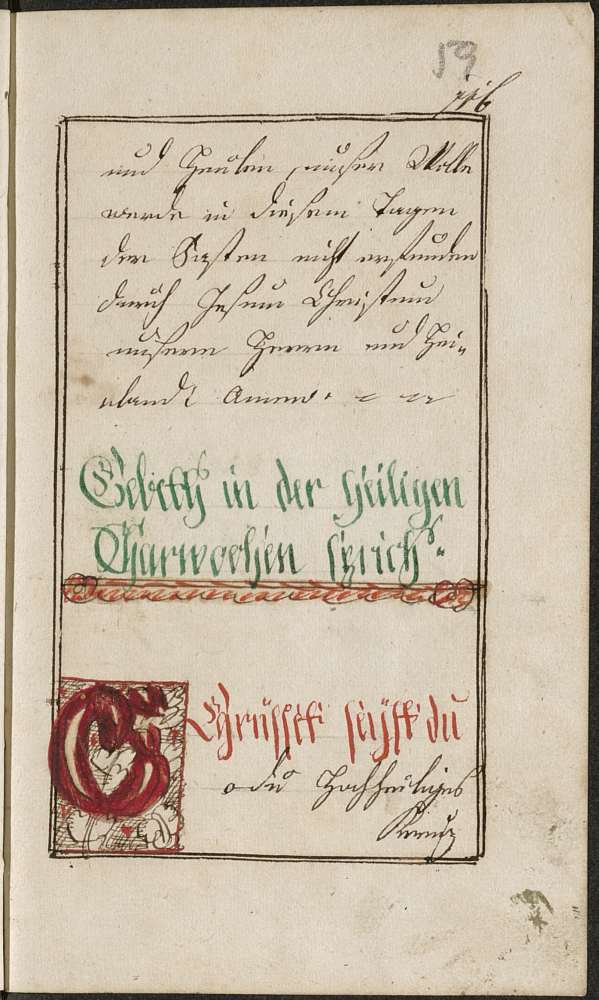 59
und Heulen, unser Wolle
werde in diesem Tagen
der Fasten nicht erfunden
durch Jesum Christum
unserem Herren und Hei„
elandt Amen.
Gebetth in der Heiligen
Charwochen sprich.
Gegrüsset seÿst du
o du Hochheiliges
Kreuz